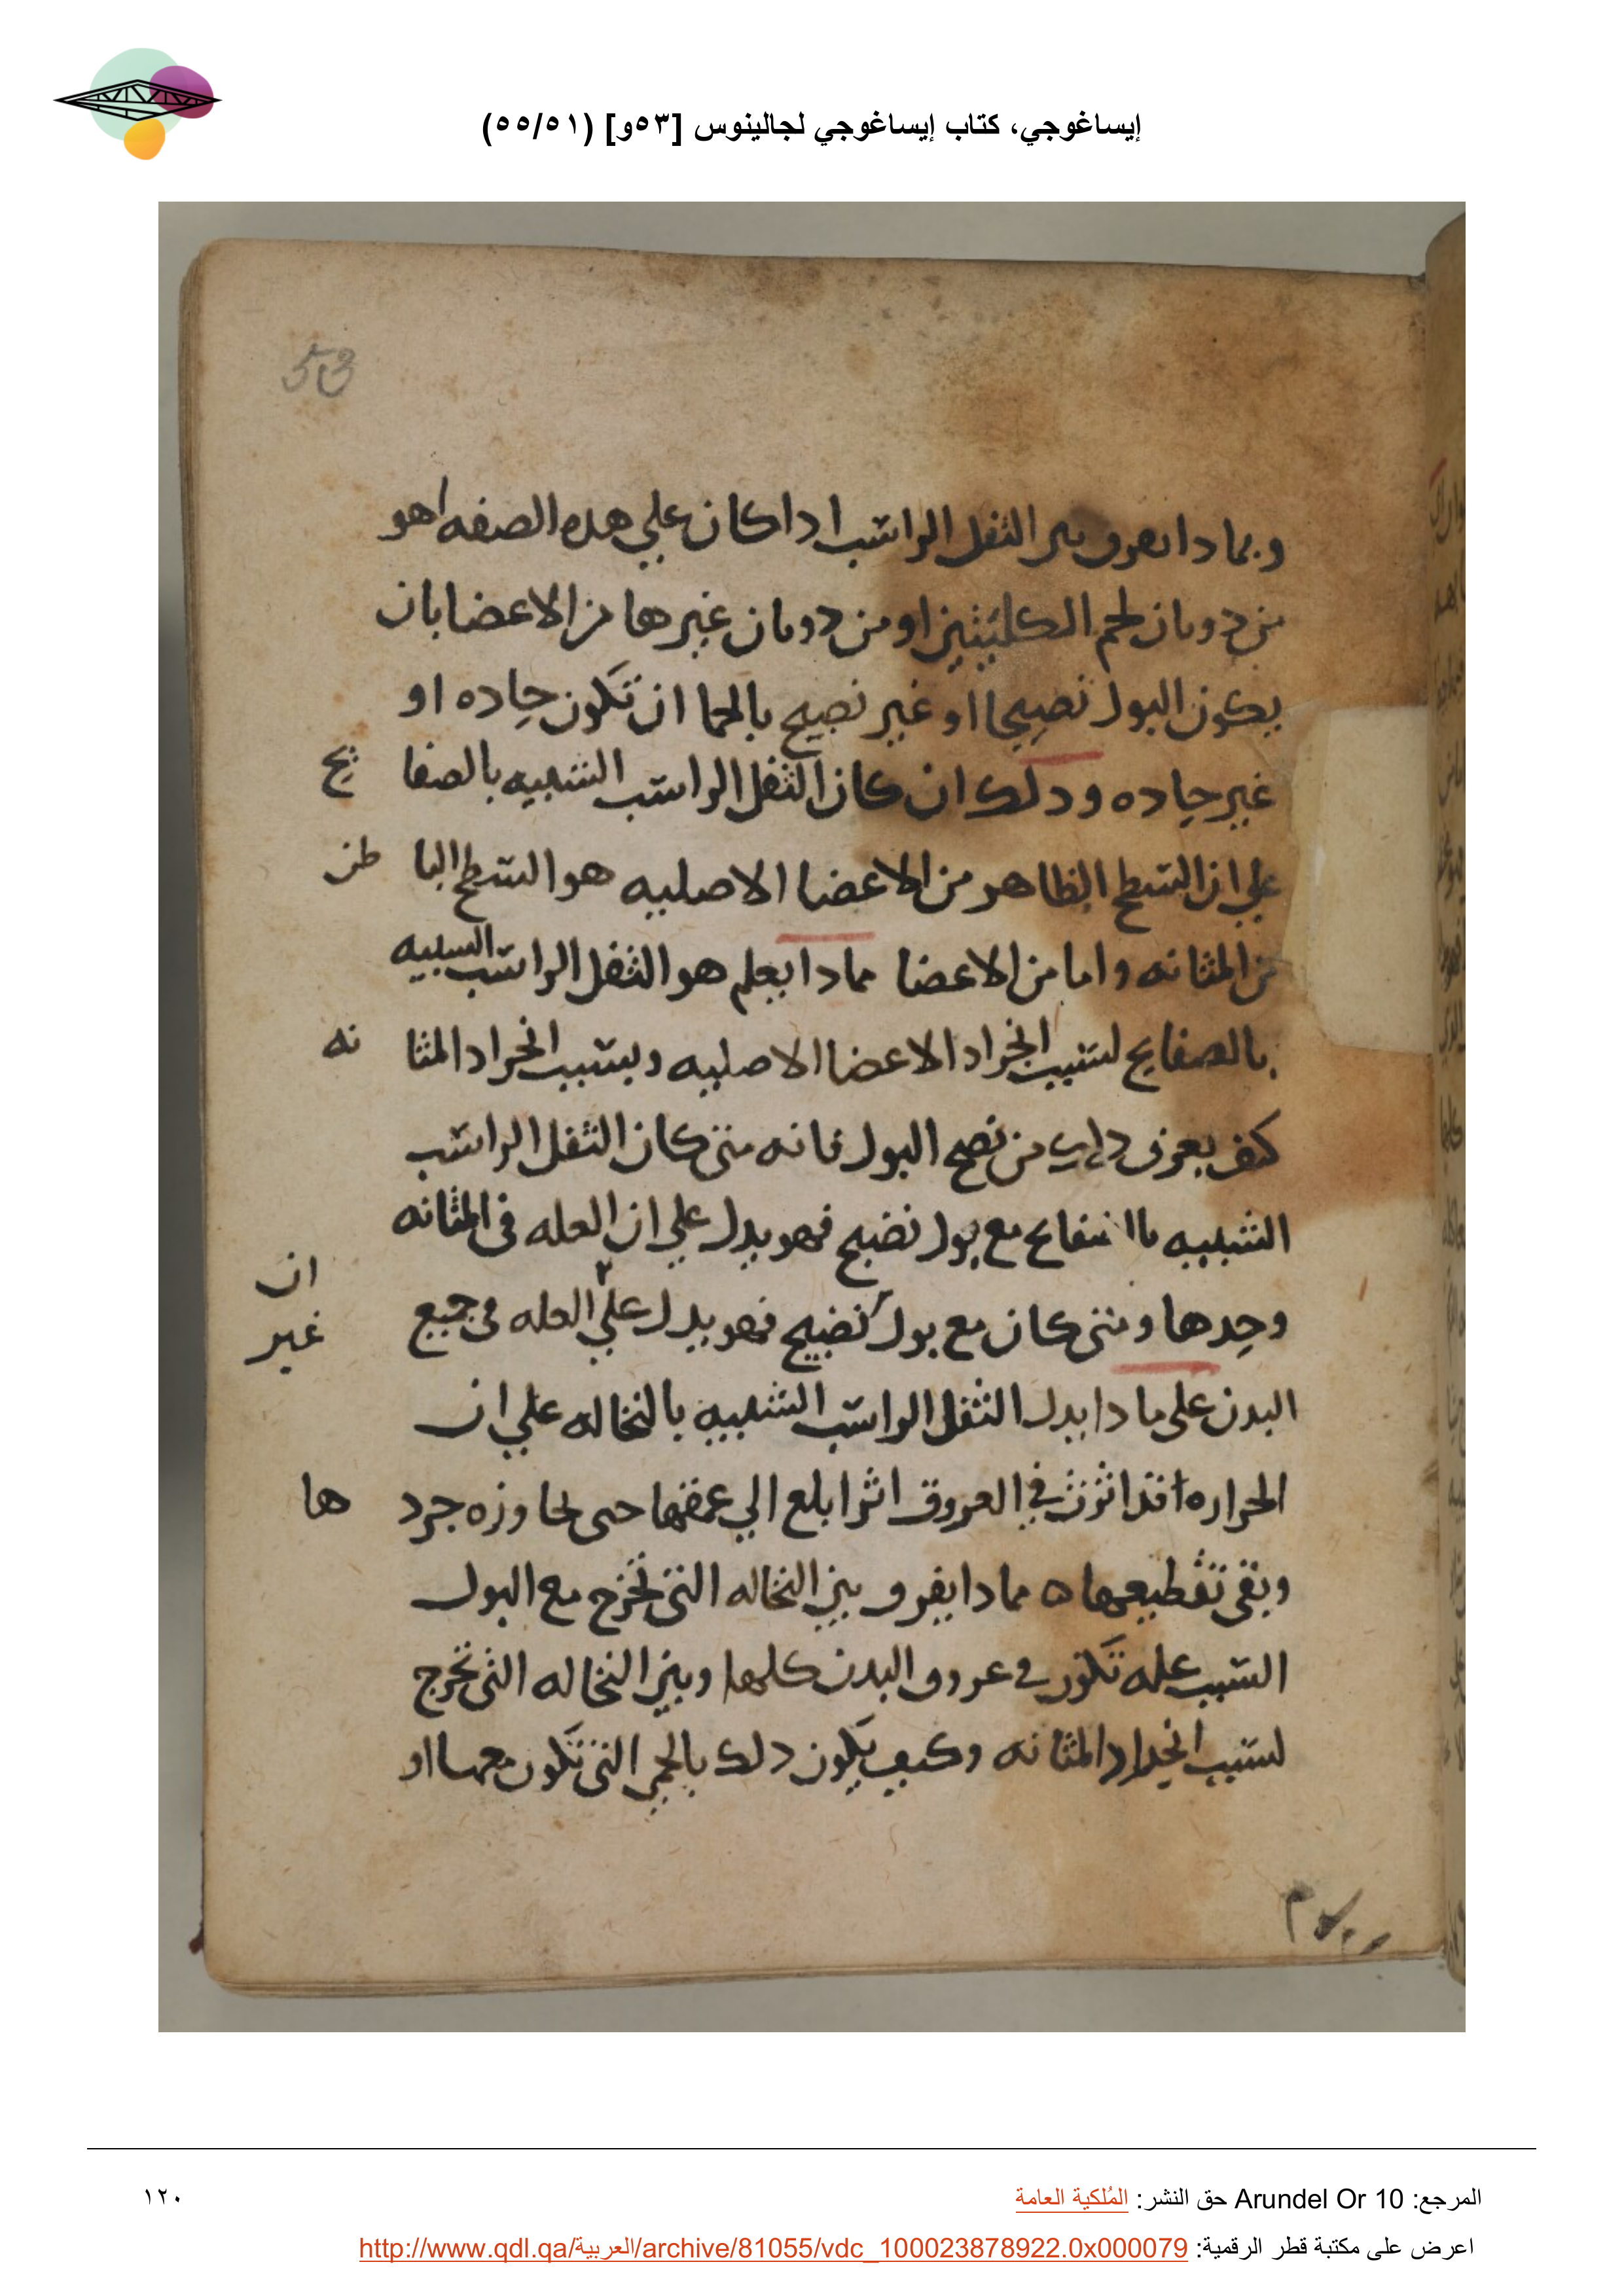 إيساغوجي، كتاب إيساغوجي لجالينوس [٥٣و] (٥٥/٥١)
53
وبمادا نفرق بين الثفل الراسب ادا كان علي هده الصفه اهو
من دوبان لحم الكليتين او من دوبان غيرها من الاعضا بان
يكون البول نصيجا او غير نصيج بالحما ان تكون حاده او
غير حاده ودلك ان كان الثفل الراسب الشبيه بالصفا يح
علي ان السطح الظاهر من الاعضا الاصليه هو السطح البا طن
من المثانه واما من الاعضا مادا يعلم هو الثفل الراسب الشبيه
بالصفايح لسبب انجراد الاعضا الاصليه وبسبب انجراد المثا نه
كيف يعرف دلك من نصج البول فانه متي كان الثفل الراسب
الشبيه باا صفايح مع بول نضيج فهو يدل علي ان العله في المثانه
وحدها ومتي كان مع بول نضيج فهو يدل علي العله في جميع
ان
غير
البدن علي مادا يدل الثفل الراسب الشبيه بالنخاله علي ان
الحراره قد اثرت في العروق اثرا بلع الي عمقها حتى تجاوزه جرد ها
وبقي تقطيعها ه مادا يفرق بين النخاله التي تخرج مع البول
السبب عله تكون في عروق البدن كلها وبين النخاله التي تخرج
لسبب انجراد المثانه وكيف يكون دلك بالحمي التي تكون معها او
المرجع: Arundel Or 10 حق النشر: المُلكية العامة
١٢٠
اعرض على مكتبة قطر الرقمية: http://www.qdl.qa/العربية/archive/81055/vdc_100023878922.0x000079